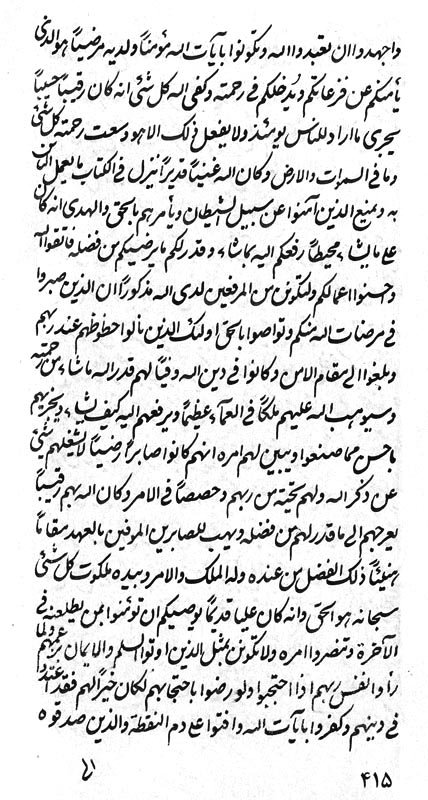 واجهدوا ان تعبدوا الله وتكونوا بايات الله مؤمناً ولديه مرضيّاً هو الذى
يأمنكم عن فزعاتكم ويدخلكم فى رحمته وكفى الله كل شئى انه كان رقيباً حسيباً
يجرى ما اراد للناس يومئذ ولا يفعل ذلك الا هو وسعت رحمته كل شئى
وما فى السموات والارض وكان الله غنيّاً قديراً نيزل فى الكتاب ما يعمل الناس
به ويمنع الذين آمنوا عن سبيل الشيطان ويأمرهم بالحق والهدى انه كان
على ما يشاء محيطاً رفعكم اليه بما شاء وقدر لكم ما يرضيكم من فضله فاتقوا الله
وحسنوا اعمالكم ولتكونن من المرفعين لدى الله مذكوراً ان الذين صبروا
فى مرضات الله منكم وتواصوا بالحق اولئك الذين نالوا حظوظهم عند ربهم
وبلغوا الى مقام الامن وكانوا فى دين الله وفيّاً لهم قدر الله ما شاء من رحمته
وسيوهب الله عليهم ملكاً فى العماء عظيماً ويرفعهم اليه كيف يشاء ويجزيهم
باحسن مما صنعوا ويبين لهم امره انهم كانوا صابراً رضيّاً لا يشغلهم شئى
عن ذكر الله ولهم تحية من ربهم وحصصاً فى الامر وكان الله بهم رقيباً
يعرجهم الى ما قدر لهم من فضله ويهب للصابرين الموفين بالعهد مقاماً
بهيّئاً ذلك الفضل من عنده وله الملك والامر وبيده ملكوت كل شئى
سبحانه هو الحق وانه كان عليا قديماً يوصيكم ان تؤمنوا بمن يطلعنه فى
الآخرة وتنصروا امره ولا تكونن بمثل الذين اوتوا العلم والايمان بزعمهم ولما
رأوا نفس ربهم اذا احتجبوا ولو رضوا باحتجابهم لكان خيراً لهم فقد اعتدوا
فى دينهم وكفروا بايات الله وافتوا على دم النقطة والذين صدقوه
الى
۴۱۵